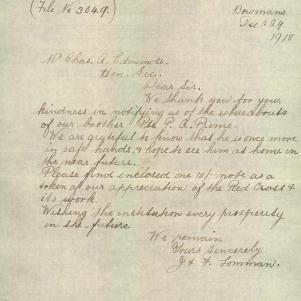 (File No 3049.)
Bowmans
Dec 29
1918
Mr Chas. A. Edmunds.
Hon. Sec.
Dear Sir.
We thank you for your
kindness in notifying us of the whereabouts
of our brother Pte P. R. Prime.
We are grateful to know that he is once more
in safe hands, & hope to see him at home in
the near future.
Please find enclosed one 10/- note as a
token of our appreciation of the Red Cross &
its work.
Wishing the institution every prosperity
in the future
We remain
Yours Sincerely
J & F. Lomman.